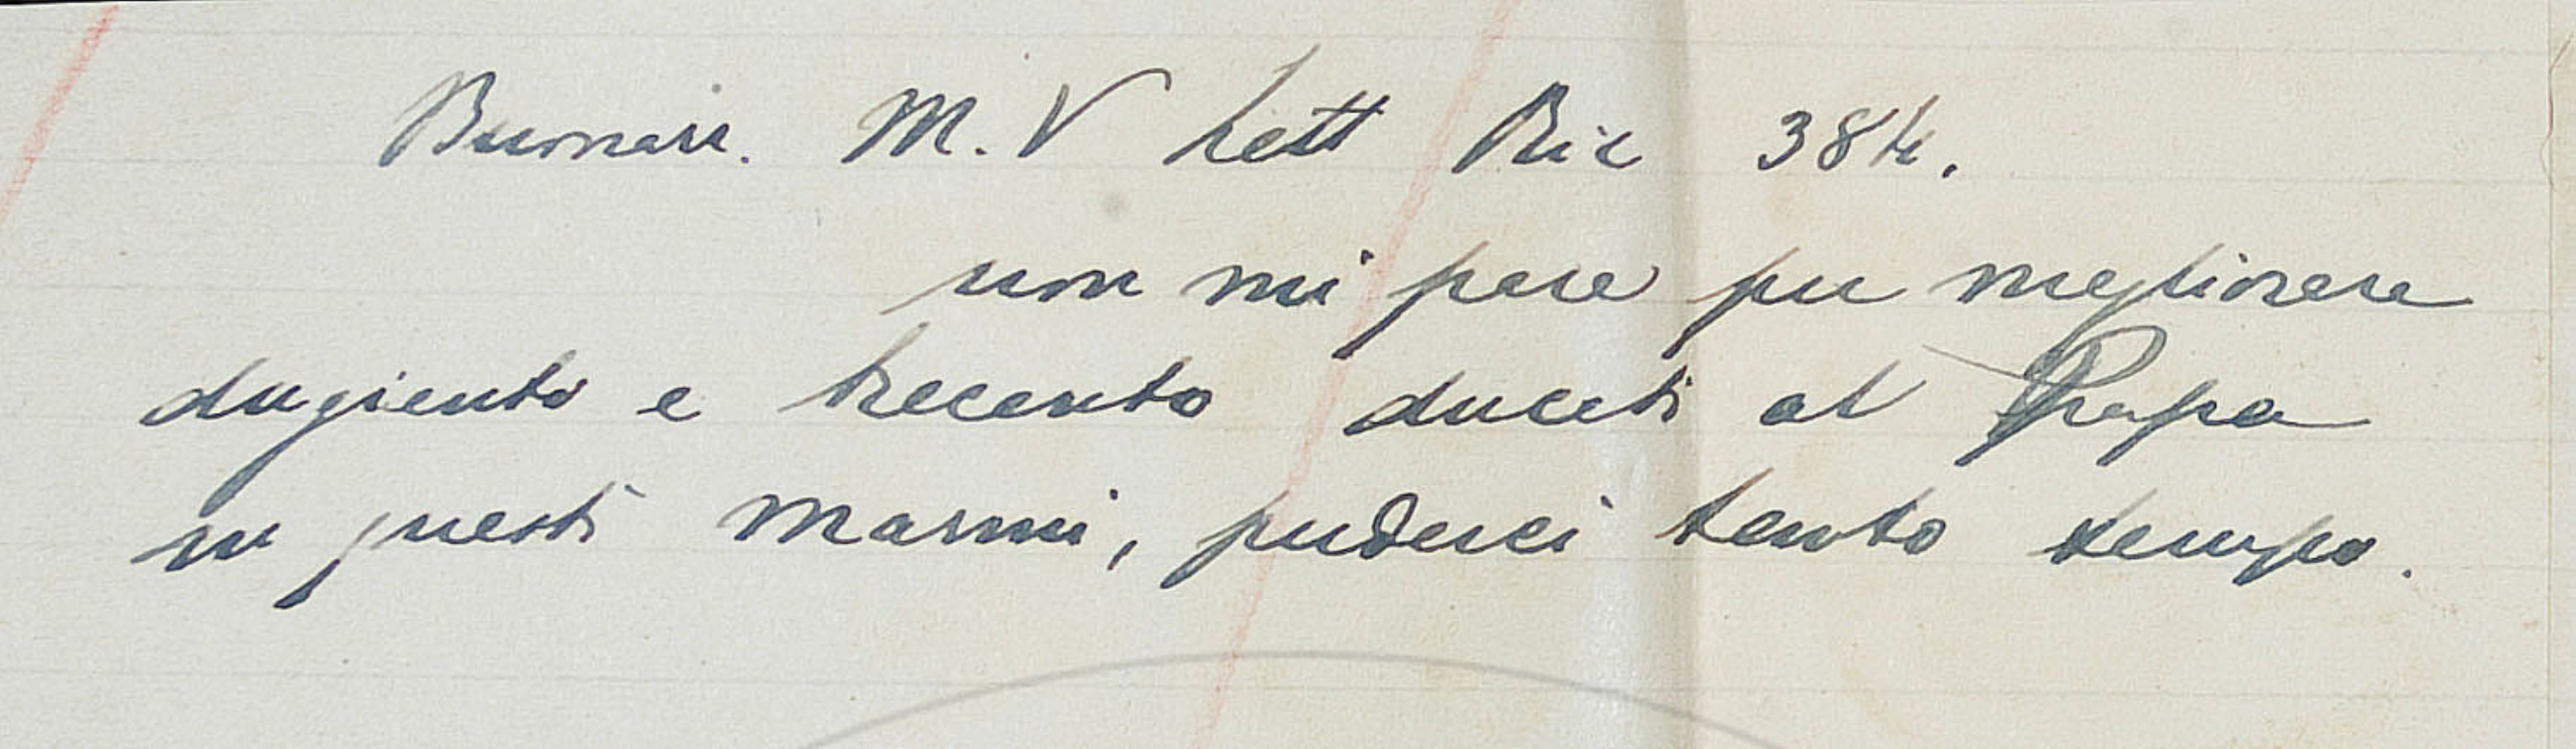 Buonarr. M. V Lett Ric 384.
non mi pare per megliorare
dugiento e trecento ducati al Papa
in questi marmi, perderci tanto tempo.